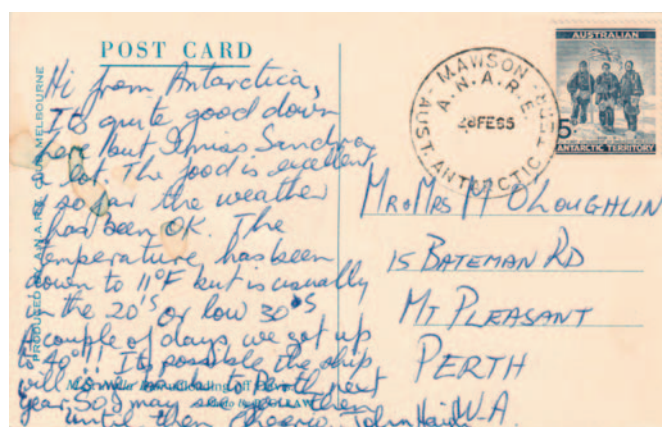 POST CARD
Hi from Antarctica,
It's quite good down
here but I miss Sandra
a lot. The food is excellent
& so far the weather
has been OK. The
temperature has been
down to 11°F but is usually
in the 20's or low 30's
A couple of days we got up
to 40°!! Its possible the ship
will come back to Perth next
year. So I may see you then
until then Cheerio.
PRODUCED BY A.N.A.R.E. CLUB MELBOURNE
MAWSON
A.N.A.R.E.
28FE65
AUST. ANTARCTIC TERR.
AUSTRALIAN
5D
ANTARCTIC TERRITORY
MR & MRS M O'LOUGHLIN
15 BATEMAN RD
MT PLEASANT
PERTH
W.A.